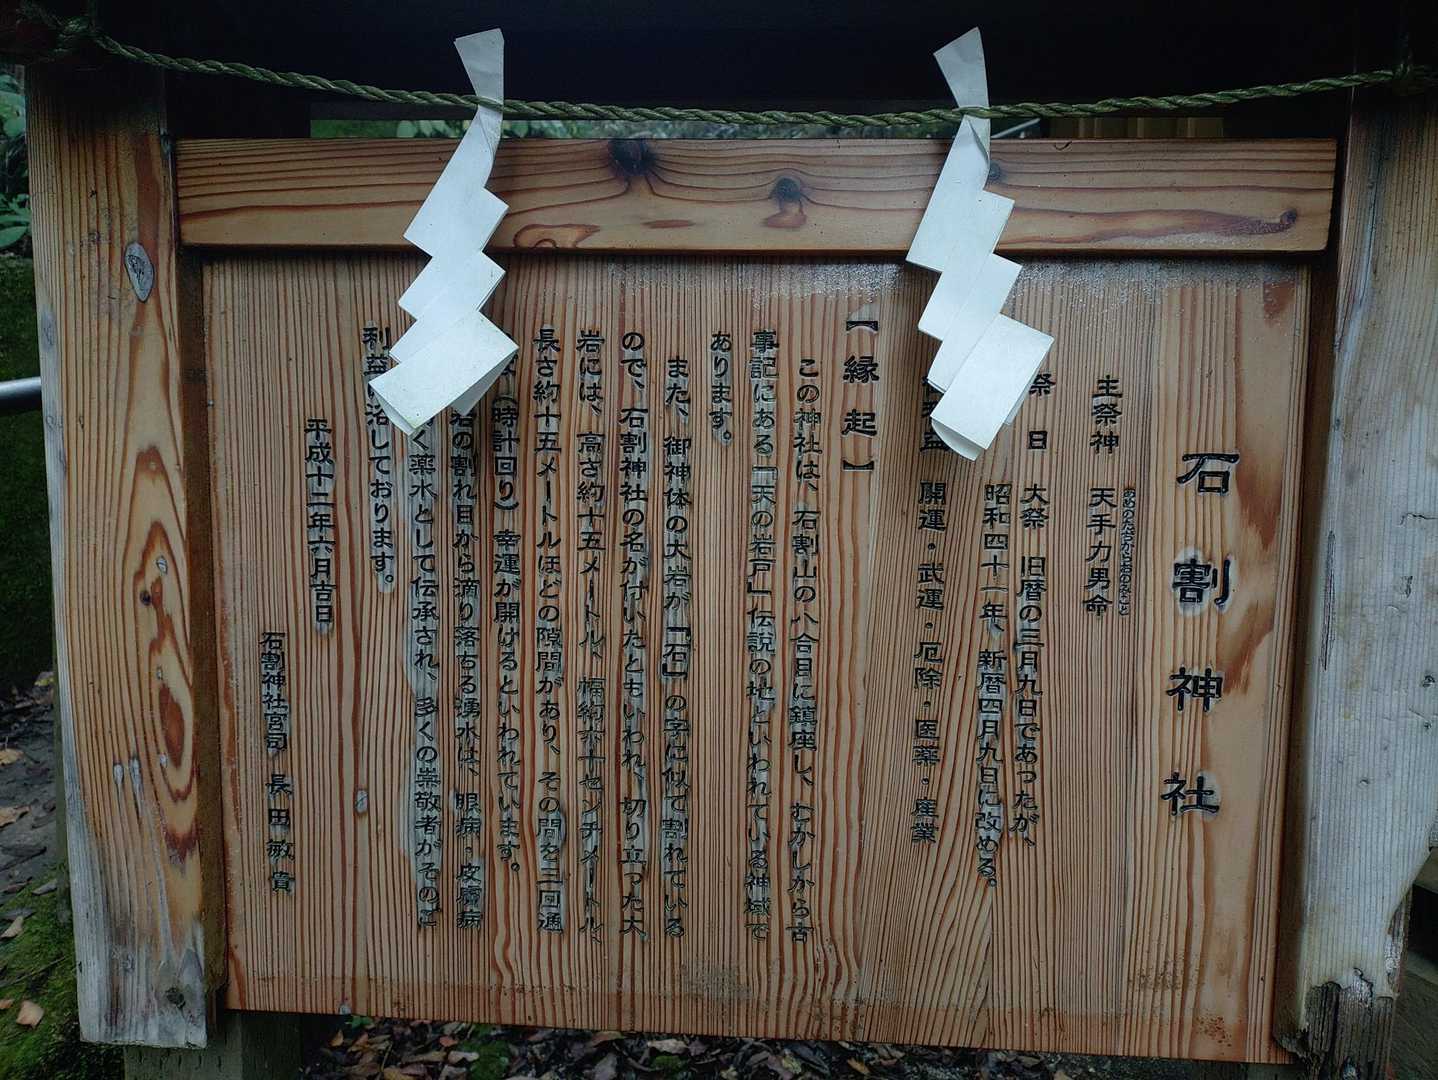 石割神社
主祭神　天手力男命
あめのたぢからおのみこと
祭　日　大祭　旧暦の三月九日であったが、
昭和四十一年、新暦四月九日に改める。
開運・武運・厄除・医薬・産業
【縁起】
この神社は、石割山の八合目に鎮座し、むかしから古
事記にある「天の岩戸」伝説の地といわれている神域で
あります。
また、御神体の大岩が「石」の字に似て割れている
ので、石割神社の名が付いたともいわれ、切り立った大
岩には、高さ約十五メートル、幅約六十センチメートル、
長さ約十五メートルほどの隙間があり、その間を三回通
（時計回り）幸運が開けるといわれています。
岩の割れ目から滴り落ちる湧水は、眼病・皮膚病
く薬水として伝承され、多くの崇敬者がそのご
利益に浴しております。
平成十二年六月吉日
石割神社宮司　長田敏貴